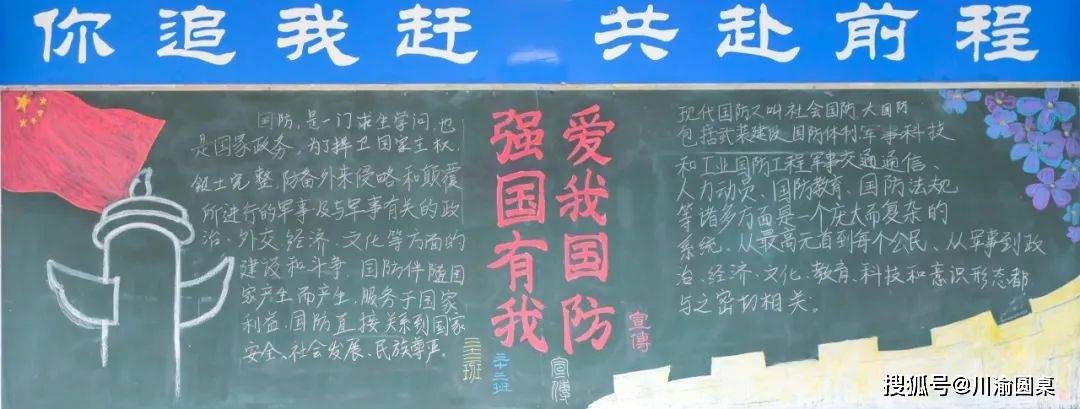 你追我赶 共赴前程
国防,是一门求生学问,也
是国家政务,为了捍卫国家主权、
领土完整,防备外来侵略和颠覆
所进行的军事及与军事有关的政
治、外交、经济、文化等方面的
建设和斗争。国防伴随国
家产生而产生,服务于国家
利益,国防直接关系到国家
安全、社会发展、民族尊严。
爱我国防
强国有我
三十二班
宣傳
宣傳
现代国防又叫社会国防、大国防
包括武装建设、国防体制、军事科技
和工业、国防工程、军事交通通信、
人力动员、国防教育、国防法规
等诸多方面,是一个庞大而复杂的
系统,从最高元首到每个公民、从军事到政
治、经济、文化、教育、科技和意识形态都
与之密切相关。
搜狐号@川渝圆桌